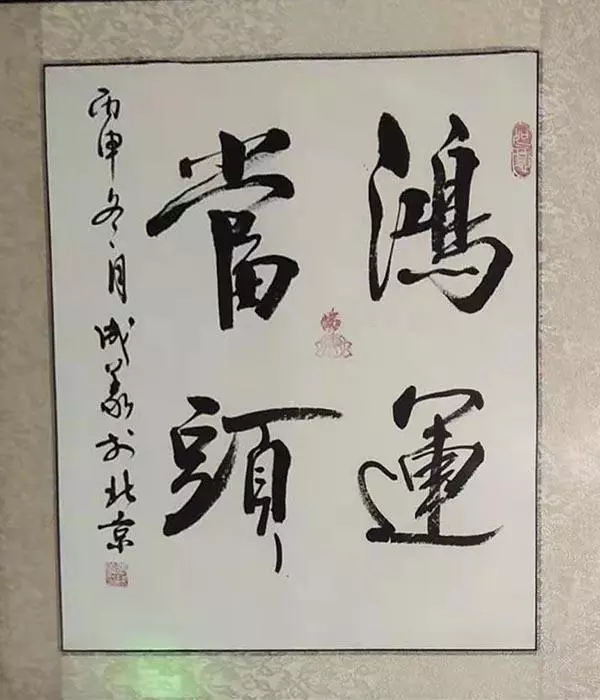 鴻運
當頭
丙申冬月成義於北京